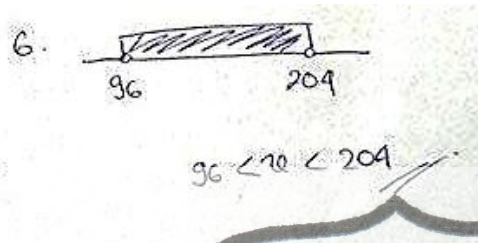 6.
96 204
96 < x < 204